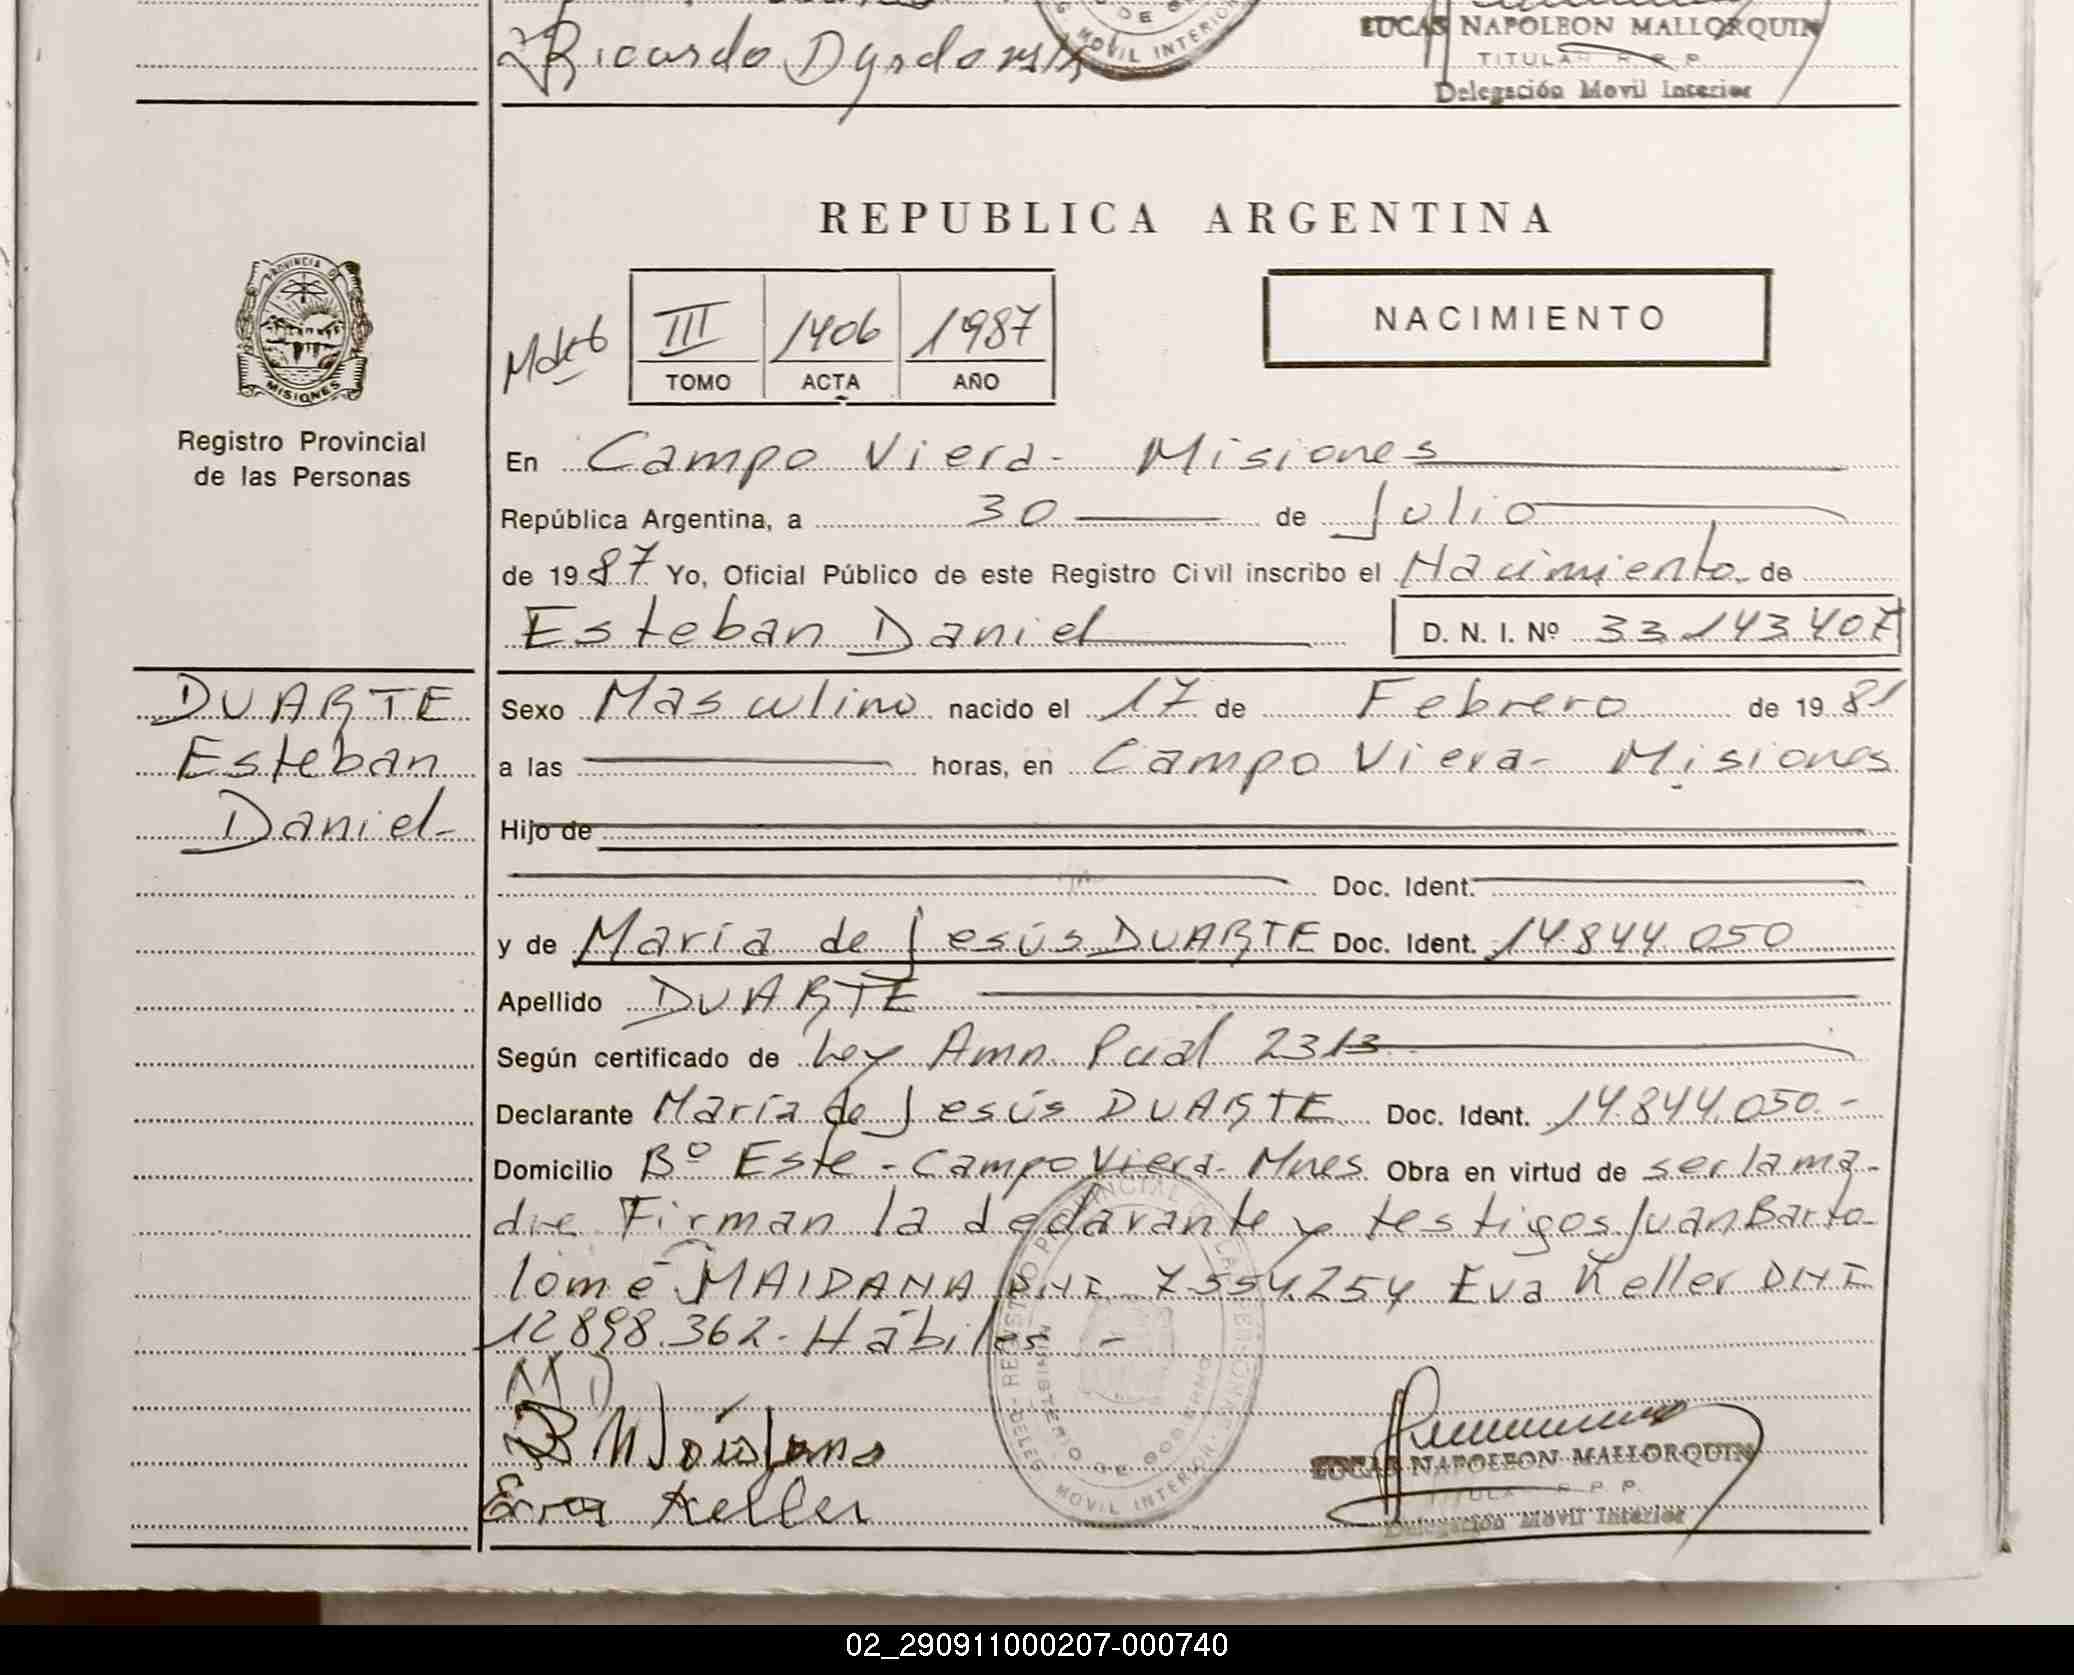 Ricardo
LUCAS NAPOLEON MALLORQUIN
TITULAR R.P.P.
Delegación Movil Interior
MOVIL INTERIOR
REPUBLICA ARGENTINA
PROVINCIA D
MISIONES
Registro Provincial
de las Personas
III 1406 1987
TOMO ACTA AÑO
NACIMIENTO
En Campo Viera - Misiones
República Argentina, a 30 de Julio
de 1987 Yo, Oficial Público de este Registro Civil inscribo el Nacimiento de
Esteban Daniel D. N. I. Nº 33.143.407
DUARTE
Esteban
Daniel-
Sexo Masculino nacido el 17 de Febrero de 1981
a las horas, en Campo Viera - Misiones
Hijo de
Doc. Ident.
y de María de Jesús DUARTE Doc. Ident. 14.844.050
Apellido DUARTE
Según certificado de Ley Amn. Pcial 2313
Declarante María de Jesús DUARTE Doc. Ident. 14.844.050.-
Domicilio Bº Este - Campo Viera - Mnes Obra en virtud de ser la ma-
dre Firman la declarante y testigos Juan Barto-
lomé MAIDANA DNI 7554.254 Eva Keller DNI
12898.362 - Hábiles -
Eva Keller
REGISTRO PROVINCIAL DE LAS PERSONAS - DELEG. MOVIL INTERIOR
MINISTERIO DE GOBIERNO
LUCAS NAPOLEON MALLORQUIN
TITULAR R.P.P.
Delegación Movil Interior
02_290911000207-000740